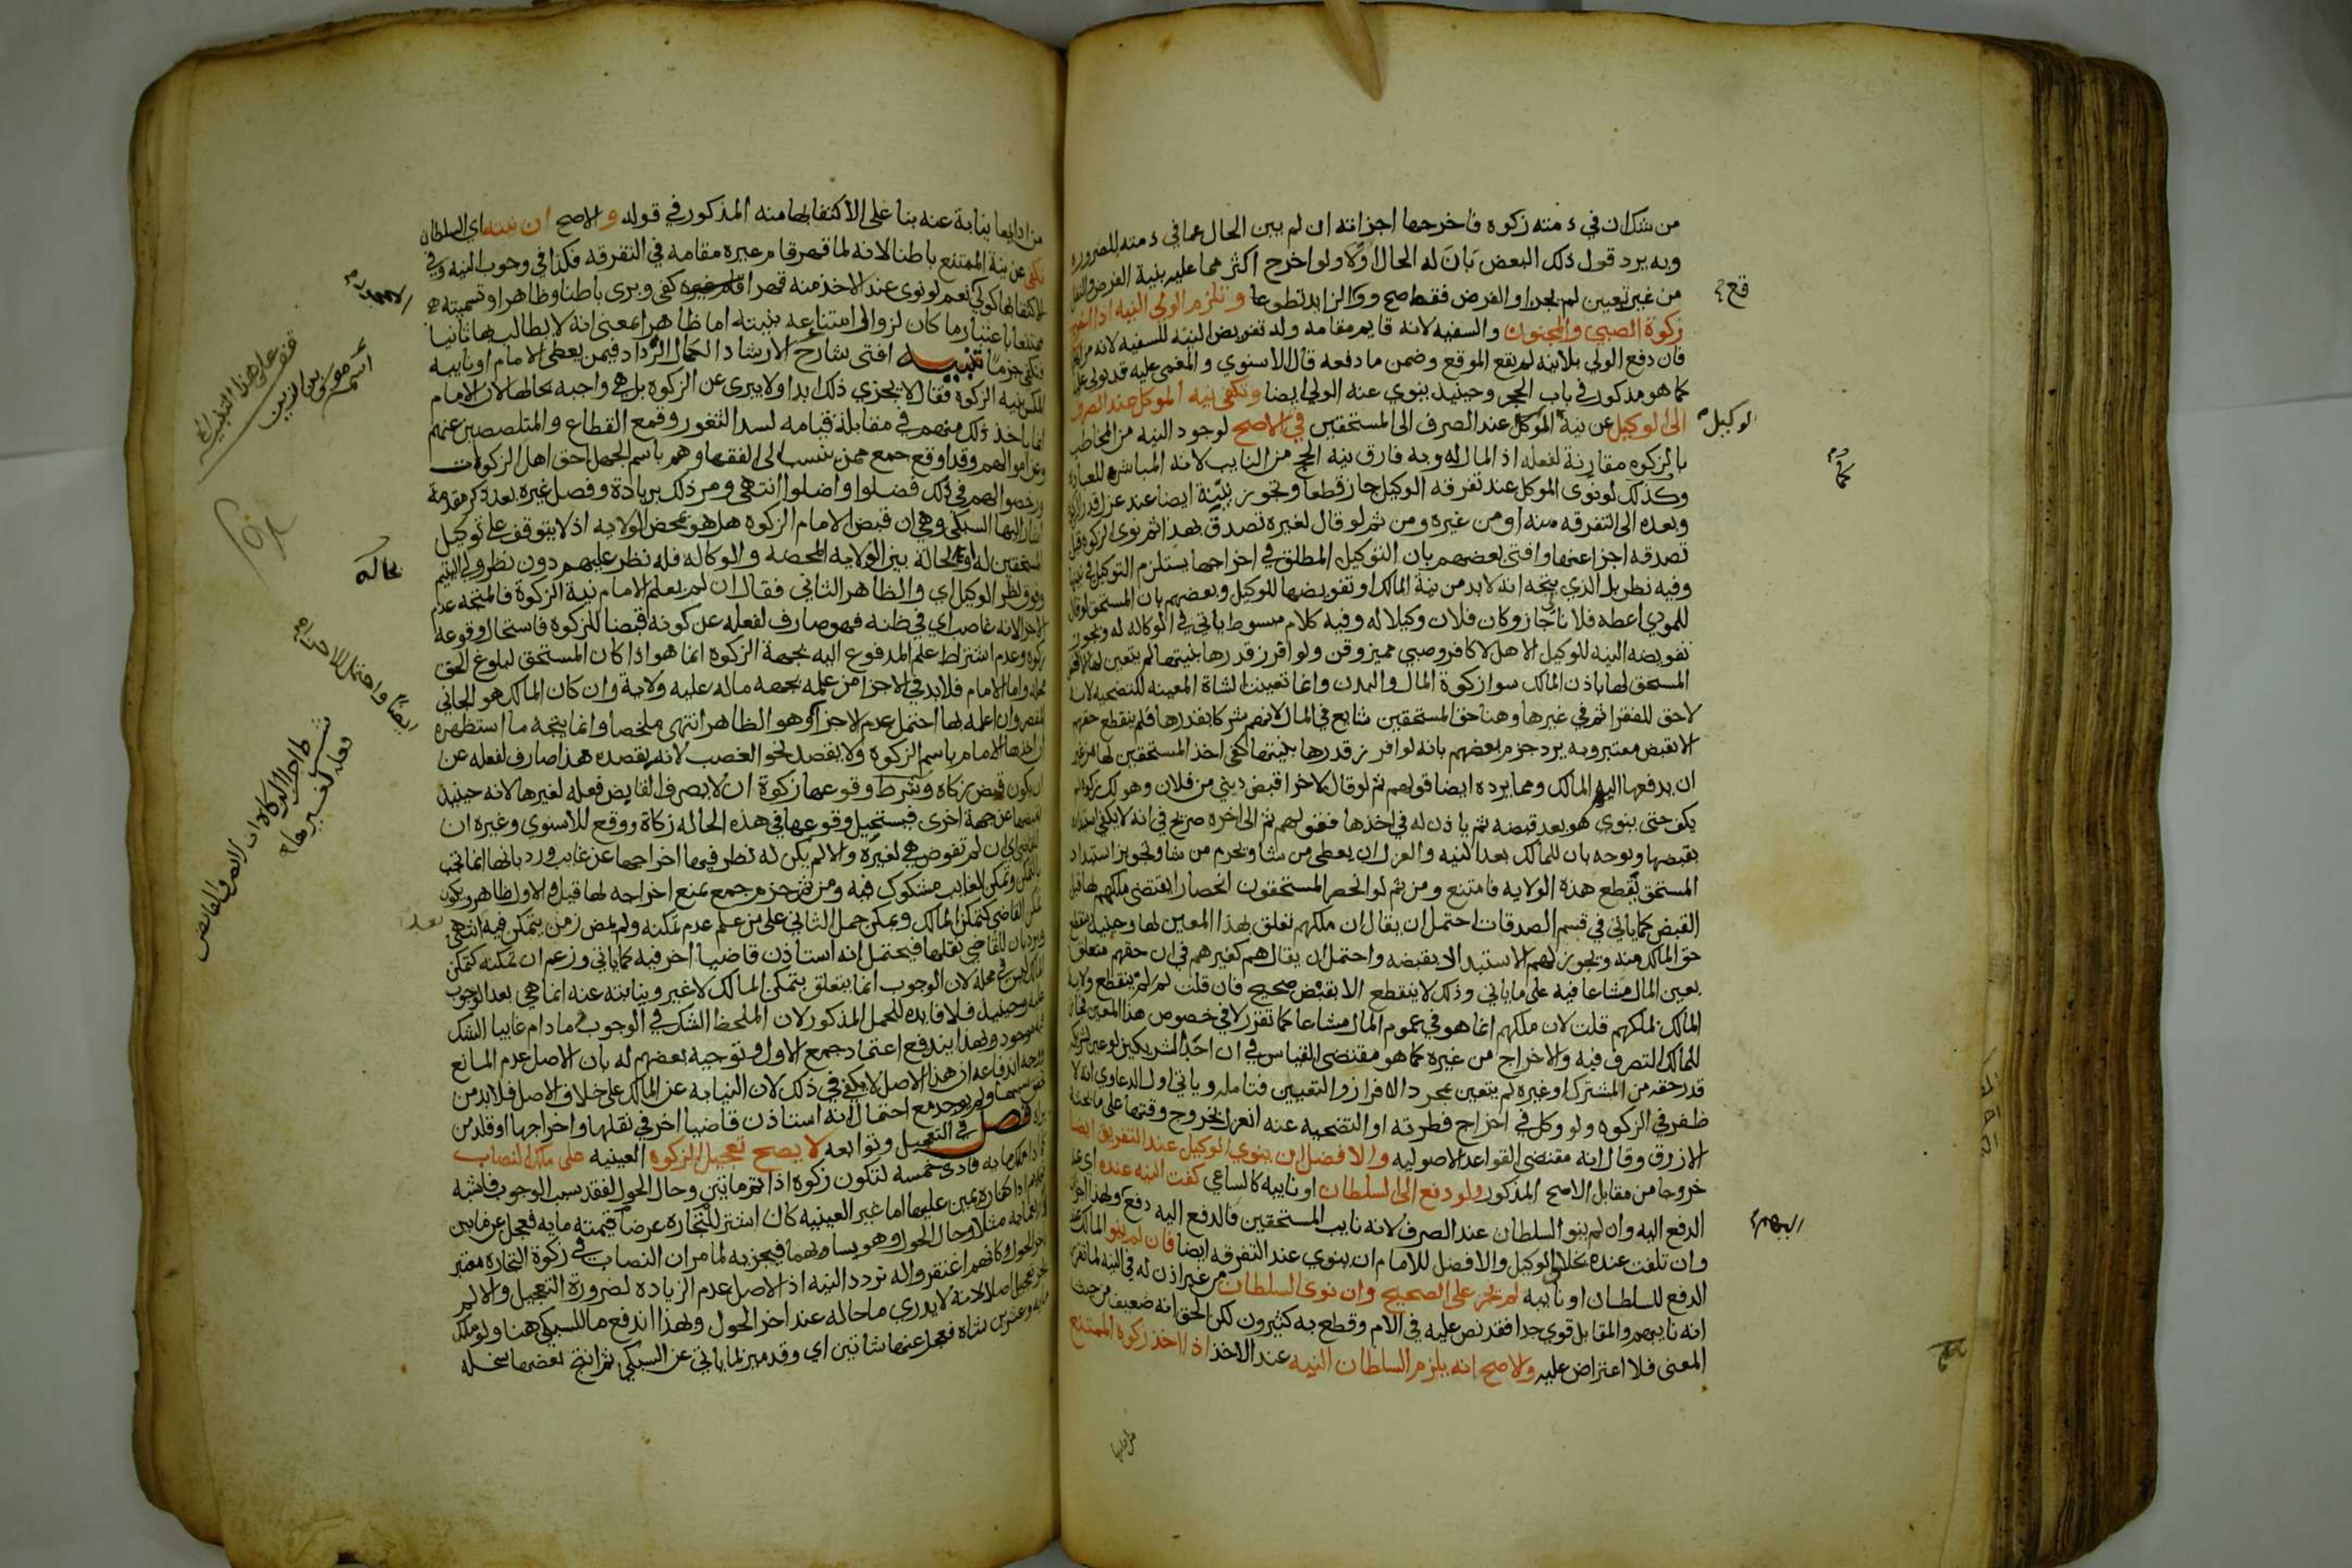 من شك ان في ذمته زكوه فاخرجها اجزاته ان لم يبن الحال عما في ذمته للضروره
وبه يرد قول ذلك البعض بَانَ له الحال اوْلا ولو اخرج اكثر مما عليه بنية الفرض والنفل
من غير تعيين لم يجز او الفرض فقط صح ووقع الزايد تطوعا وتلزم الولي النيه اذا اخرج
زكوة الصبي والمجنون والسفيه لانه قايم مقامه وله تفويض النيه للسفيه لانه من اهلها
فان دفع الولي بلا نيه لم يقع الموقع وضمن ما دفعه قال الاسنوي والمغمى عليه قد يولى عليه
كما هو مذكور في باب الحجر وحينيذ ينوي عنه الولي ايضا وتكفي نيه الموكل عند الصرف
الى الوكيل عن نية الوكيل عند الصرف الى المستحقين في الاصح لوجود النيه من المخاطب
بالزكوه مقارنة لفعله اذ المال له وبه فارق نيه الحج من النايب لانه المباشر للعباده
وكذلك لو نوى الموكل عند تفرقه الوكيل جاز قطعا وتجوز نيّته ايضا عند عزل قدر الزكاه
وبعده الى التفرقه منه او من غيره ومن ثم لو قال لغيره تصدق بهذا ثم نوى الزكوه قبل
تصدقه اجزا عنها وافتى بعضهم بان التوكيل المطلق في اخراجها يستلزم التوكيل في نيتها
وفيه نظر بل الذي يتجه انه لا بد من نية المالك او تفويضها للوكيل وبعضهم بان المستحق لو قال
للمودي اعطه فلانا جاز وكان فلان وكيلا له وفيه كلام مبسوط ياتي في الوكاله له وتجوز
تفويضه النيه للوكيل الاهل لا كافر وصبي مميز وقن ولو افرز قدرها بنيتها لم يتعين لها الا بقبض
المستحق لها باذن المالك سوا زكوة المال والبدن وانما تعينت الشاة المعينه للتضحيه لانه
لا حق للفقرا ثم في غيرها وهنا حق المستحقين شايع في المال لانهم شركا بقدرها فلم ينقطع حقهم
الا بقبض معتبر وبه يرد جزم بعضهم بانه لو افرز قدرها بنيتها كفى اخذ المستحقين لها من غير
ان يدفعها اليهم المالك ومما يرده ايضا قولهم ثم لو قال لاخر اقبض ديني من فلان وهو لك زكوه لم
يكف حتى ينوي هو بعد قبضه ثم ياذن له في اخذها فقولهم ثم الى اخره صريح في انه لا يكفي استبداده
بقبضها ويوجه بان للمالك بعد النيه والعزل ان يعطي من شا ويحرم من شا وتجويز استبداد
المستحق يقطع هذه الولايه فامتنع ومن ثم لو انحصر المستحقون انحصارا يقتضي ملكهم لها قبل
القبض كما ياتي في قسم الصدقات احتمل ان يقال ان ملكهم تعلق بهذا المعين لها وحينيذ ينقطع
حق المالك منه ويجوز لهم الاستبداد بقبضه واحتمل ان يقال هم كغيرهم في ان حقهم متعلق
بعين المال مشاعا فيه على ما ياتي وذلك لا ينقطع الا بقبض صحيح فان قلت لم لم ينقطع ولاية
المالك بملكهم قلت لان ملكهم انما هو في عموم المال مشاعا كما تقرر لا في خصوص هذا المعين فجاز
للمالك التصرف فيه والاخراج من غيره كما هو مقتضى القياس في ان احد الشريكين لو عين لشريكه
قدر حقه من المشترك او غيره لم يتعين بمجرد الافراز والتعيين فتامله وياتي اول الدعاوي انه لا
ظفر في الزكوه ولو وكل في اخراج فطرته او التضحيه عنه انعزل بخروج وقتها على ما بحثه
الازرق وقال انه مقتضى القواعد الاصوليه والافضل ان ينوي الوكيل عند التفريق ايضا
خروجا من مقابل الاصح المذكور ولو دفع الى السلطان او نايبه كالساعي كفت النيه عنده اي عند
الدفع اليه وان لم ينو السلطان عند الصرف لانه نايب المستحقين فالدفع اليه دفع ولهذا اجزات
وان تلفت عنده بخلاف الوكيل والافضل للامام ان ينوي عند التفرقه ايضا فان لم ينو المالك عند
الدفع للسلطان او نايبه لم يجز على الصحيح وان نوى السلطان من غير اذن له في النيه لما تقرر
انه نايبهم والمقابل قوي جدا فقد نص عليه في الام وقطع به كثيرون لكن الحق انه ضعيف من حيث
المعنى فلا اعتراض عليه والاصح انه يلزم السلطان النيه عند الاخذ اذا اخذ زكوه الممتنع
قع
الوكيل
اليهم
من ادايها نيابة عنه بنا على الاكتفا بها منه المذكور في قوله والاصح ان نيته اي السلطان
تكفي عن نية الممتنع باطنا لانه لما قهر قام غيره مقامه في التفرقه فكذا في وجوب النيه وفي
الاكتفا بها كولي نعم لو نوى عند الاخذ منه قهرا كفى وبرى باطنا وظاهرا وتسميته
ممتنعا باعتبار ما كان لزوال امتناعه بنيته اما ظاهرا بمعنى انه لا يطالب بها ثانيا
فتكفي جزما تنبيه افتى شارح الارشاد الكمال الرداد فيمن يعطي الامام او نايبه
المكس بنيه الزكوة فقال لا يجزي ذلك ابدا ولا يبرى عن الزكوة بل هي واجبه بحالها لان الامام
انما ياخذ ذلك منهم في مقابلة قيامه لسد الثغور وقمع القطاع والمتلصصين عنهم
وعن اموالهم وقد اوقع جمع ممن ينسب الى الفقها وهم باسم الجهل احق اهل الزكوات
ورخصوا لهم في ذلك فضلوا واضلوا انتهى ومر ذلك بزيادة وفصل غيره بعد ذكر مقدمة
اشار اليها السبكي وهي ان قبض الامام الزكوه هل هو بمحض الولايه اذ لا يتوقف على توكيل
المستحقين له او بحالة بين الولايه المحضه والوكاله فله نظر عليهم دون نظر ولي اليتيم
وفوق نظر الوكيل اي والظاهر الثاني فقال ان لم يعلم الامام نية الزكوة فالمتجه عدم
الاجزا لانه غاصب اي في ظنه فهو صارف لفعله عن كونه قبضا للزكوه فاستحال وقوعه
زكوه وعدم اشتراط علم المدفوع اليه بجهة الزكوه انما هو اذا كان المستحق لبلوغ الحق
محله واما الامام فلا بد في الاجزا من علمه بجهه ما له عليه ولاية وان كان المالك هو الجاني
المقصر وان اعلمه بها احتمل عدم الاجزا وهو الظاهر انتهى ملخصا وانما يتجه ما استظهره
ان اخذها الامام باسم الزكوه ولا بقصد نحو الغصب لانه بقصده هذا صارف لفعله عن
ان يكون قبض زكاه وشرط وقوعها زكوة ان لا يصرف القابض فعله لغيرها لانه حينيذ
لقبضها عن جهة اخرى فيستحيل وقوعها في هذه الحاله زكاة ووقع للاسنوي وغيره ان
القاضي اي ان لم تفوض هي لغيره والا لم يكن له نظر فيها اخراجها عن غايب ورد بانها انما تجب
بالتمكن وتمكن الغايب مشكوك فيه ومن ثم جزم جمع بمنع اخراجه لها قيل والاول ظاهر ويكون
تمكن القاضي كتمكن المالك ويمكن حمل الثاني على من علم عدم تمكنه ولم يمض زمن يتمكن فيه انتهى
ويرد بان للقاضي نقلها فيحتمل انه استاذن قاضيا اخر فيه كما ياتي وزعم ان تمكنه كتمكن
المالك ليس في محله لان الوجوب انما يتعلق بتمكن المالك لا غير ونيابته عنه انما هي بعد الوجوب
عليه وحينيذ فلا فايده للحمل المذكور لان الملحظ الشك في الوجوب وما دام غايبا الشك
موجود وبهذا يندفع اعتماد جمع الاول وتوجيه بعضهم له بان الاصل عدم المانع
ووجه اندفاعه ان هذا الاصل لا يكفي في ذلك لان النيابه عن المالك على خلاف الاصل فلا بد من
تحقق سببها ولم يوجد مع احتمال انه استاذن قاضيا اخر في نقلها واخراجها او قلد من
فصل في التعجيل وتوابعه لا يصح تعجيل الزكوة العينيه على ملك النصاب
كما اذا ملك مايه فادى خمسه لتكون زكوة اذا تم مايتين وحال الحول لفقد سبب الوجوب فاشبه
تقديم كفاره يمين عليها اما غير العينيه كان اشترا للتجاره عرضا قيمته مايه فعجل عن مايتين
او اربعمايه مثلا وحال الحول وهو يساويهما فيجزيه لما مر ان النصاب في زكوة التجاره معتبر
باخر الحول وكانهم اغتفروا له تردد النيه اذ الاصل عدم الزياده لضرورة التعجيل والا لم
يجز تعجيل اصلا لانه لا يدري ما حاله عند اخر الحول ولهذا اندفع ما للسبكي هنا ولو ملك
مايه وعشرين شاه فعجل عنها شاتين اي وقد ميز لما ياتي عن السبكي ثم انتج بعضها سخله
غفر على هذا التنبيه
بحالة
ايضا واحتمل الاجزا
شرط اجزا الزكاة ان لا يصرف القابض
فعله لغيرها